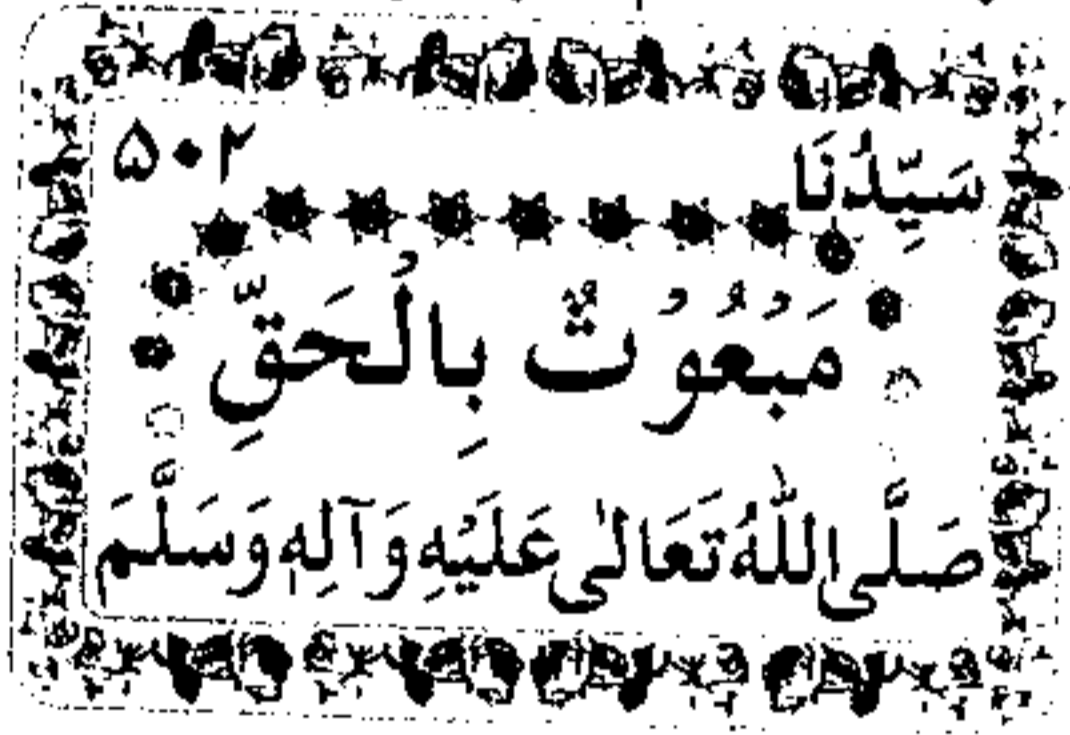 سَيِّدُنَا ۵۰۲
مَبْعُوْثٌ بِالْحَقِّ
صَلَّى اللّٰهُ تَعَالٰى عَلَيْهِ وَآلِهٖ وَسَلَّمَ